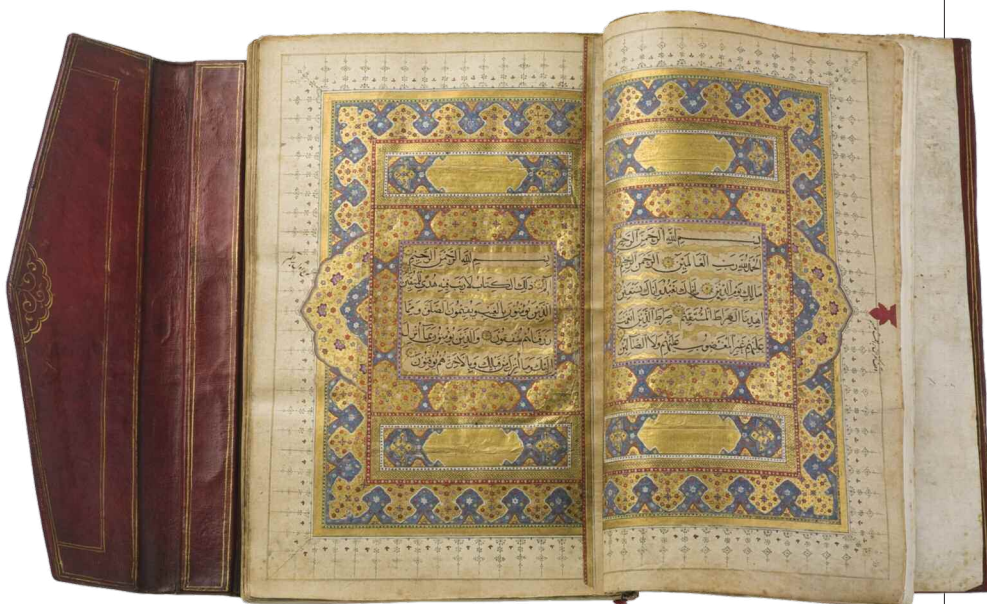 بسم الله الرحمن الرحيم
الحمد لله رب العالمين الرحمن الرحيم
مالك يوم الدين اياك نعبد واياك نستعين
اهدنا الصراط المستقيم صراط الذين انعمت
عليهم غير المغضوب عليهم ولا الضالين
بسم الله الرحمن الرحيم
الم ذلك الكتاب لا ريب فيه هدى للمتقين
الذين يؤمنون بالغيب ويقيمون الصلوة ومما
رزقناهم ينفقون والذين يؤمنون بما انزل
اليك وما انزل من قبلك وبالاخرة هم يوقنون